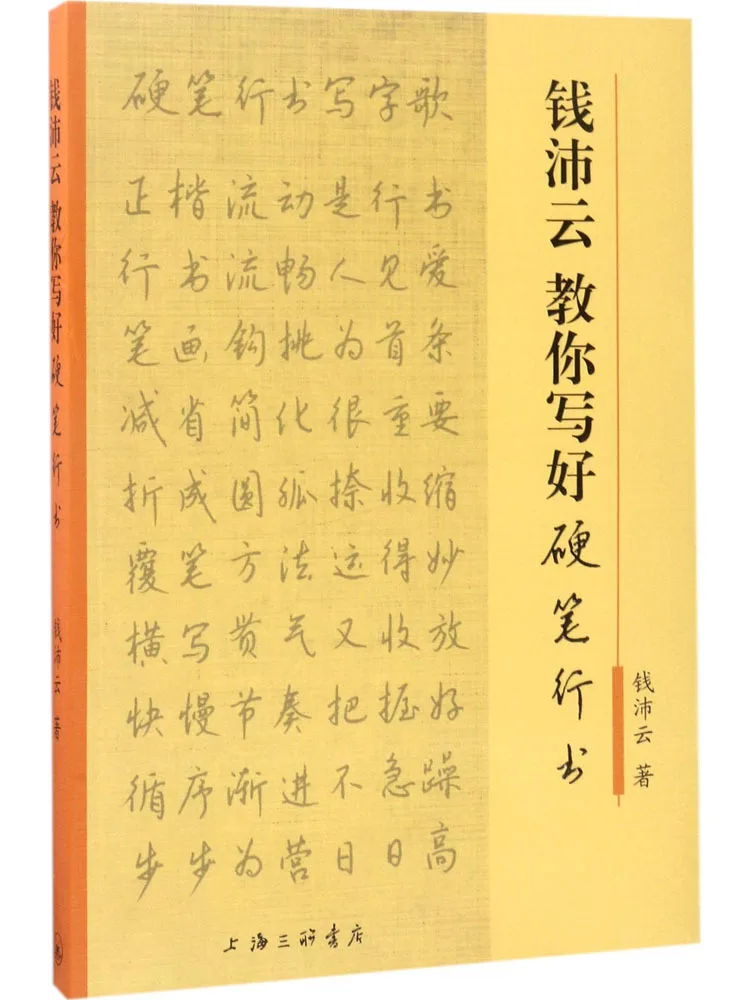 钱沛云 教你写好硬笔行书
钱沛云 著
硬笔行书写字歌
正楷流动是行书
行书流畅人见爱
笔画钩挑为首条
减省简化很重要
折成圆弧捺收缩
覆笔方法运得妙
横写贯气又收放
快慢节奏把握好
循序渐进不急躁
步步为营日日高
上海三联书店
钱沛云 教你写好硬笔行书
钱沛云 著